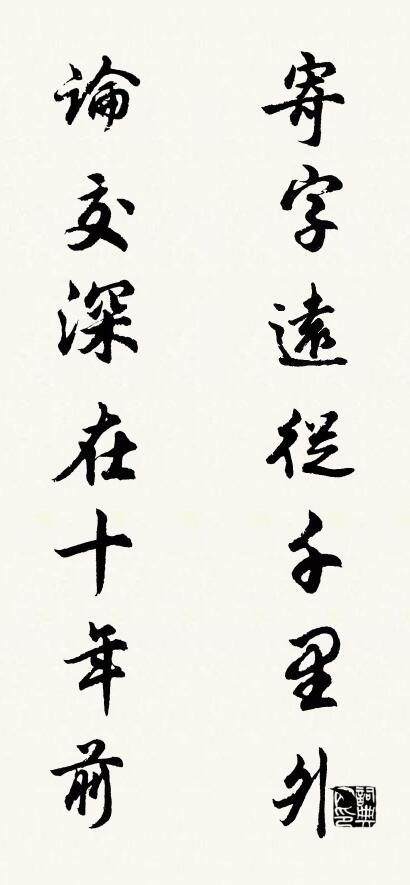 寄字遠從千里外
論交深在十年前